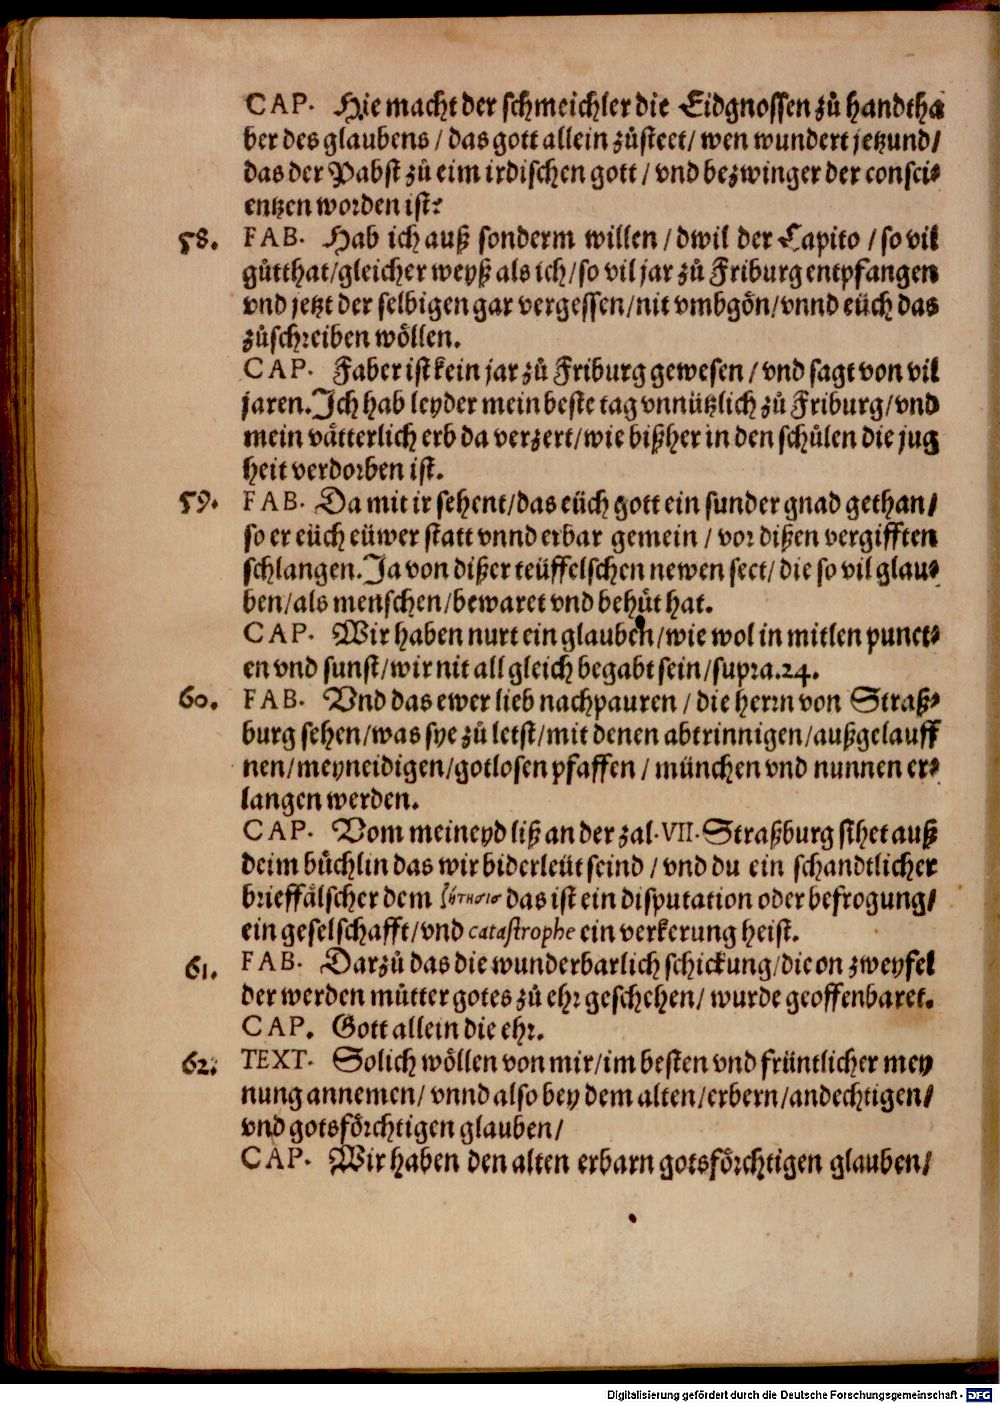 CAP. Hie macht der schmeichler die Eidgnossen zů handtha
ber des glaubens / das gott allein zůsteet / wen wundert jetzund /
das der Pabst zů eim irdischen gott / vnd bezwinger der consci⸗
entzen worden ist?
58. FAB. Hab ich auß sonderm willen / dwil der Capito / so vil
gůtthat / gleicher weyß als ich / so vil jar zů Friburg entpfangen
vnd jetzt der selbigen gar vergessen / nit vmbgön / vnnd eüch das
zůschreiben wöllen.
CAP. Faber ist kein jar zů Friburg gewesen / vnd sagt von vil
jaren. Ich hab leyder mein beste tag vnnützlich zů Friburg / vnd
mein vätterlich erb da verzert / wie bißher in den schůlen die jug
heit verdorben ist.
59. FAB. Da mit ir sehent / das eüch gott ein sunder gnad gethan /
so er eüch eüwer statt vnnd erbar gemein / vor dißen vergifften
schlangen. Ja von dißer teüffelschen newen sect / die so vil glau⸗
ben / als menschen / bewaret vnd behüt hat.
CAP. Wir haben nurt ein glauben / wie wol in mitlen punct⸗
en vnd sunst / wir nit all gleich begabt sein / supra. 24.
60. FAB. Vnd das ewer lieb nachpauren / die herrn von Straß⸗
burg sehen / was sye zů letst / mit denen abtrinnigen / außgelauff
nen / meyneidigen / gotlosen pfaffen / münchen vnd nunnen er⸗
langen werden.
CAP. Vom meineyd liß an der zal. VII. Straßburg sthet auß
deim bůchlin das wir biderleüt seind / vnd du ein schandtlicher
brieffälscher dem das ist ein disputation oder befrogung /
ein geselschafft / vnd catastrophe ein verkerung heist.
61. FAB. Darzů das die wunderbarlich schickung / die on zweyfel
der werden můtter gotes zů ehr geschehen / wurde geoffenbaret.
CAP. Gott allein die ehr.
62. TEXT. Solich wöllen von mir / im besten vnd früntlicher mey
nung annemen / vnnd also bey dem alten / erbern / andechtigen /
vnd gotsförchtigen glauben /
CAP. Wir haben den alten erbarn gotsförchtigen glauben /
Digitalisierung gefördert durch die Deutsche Forschungsgemeinschaft - DFG